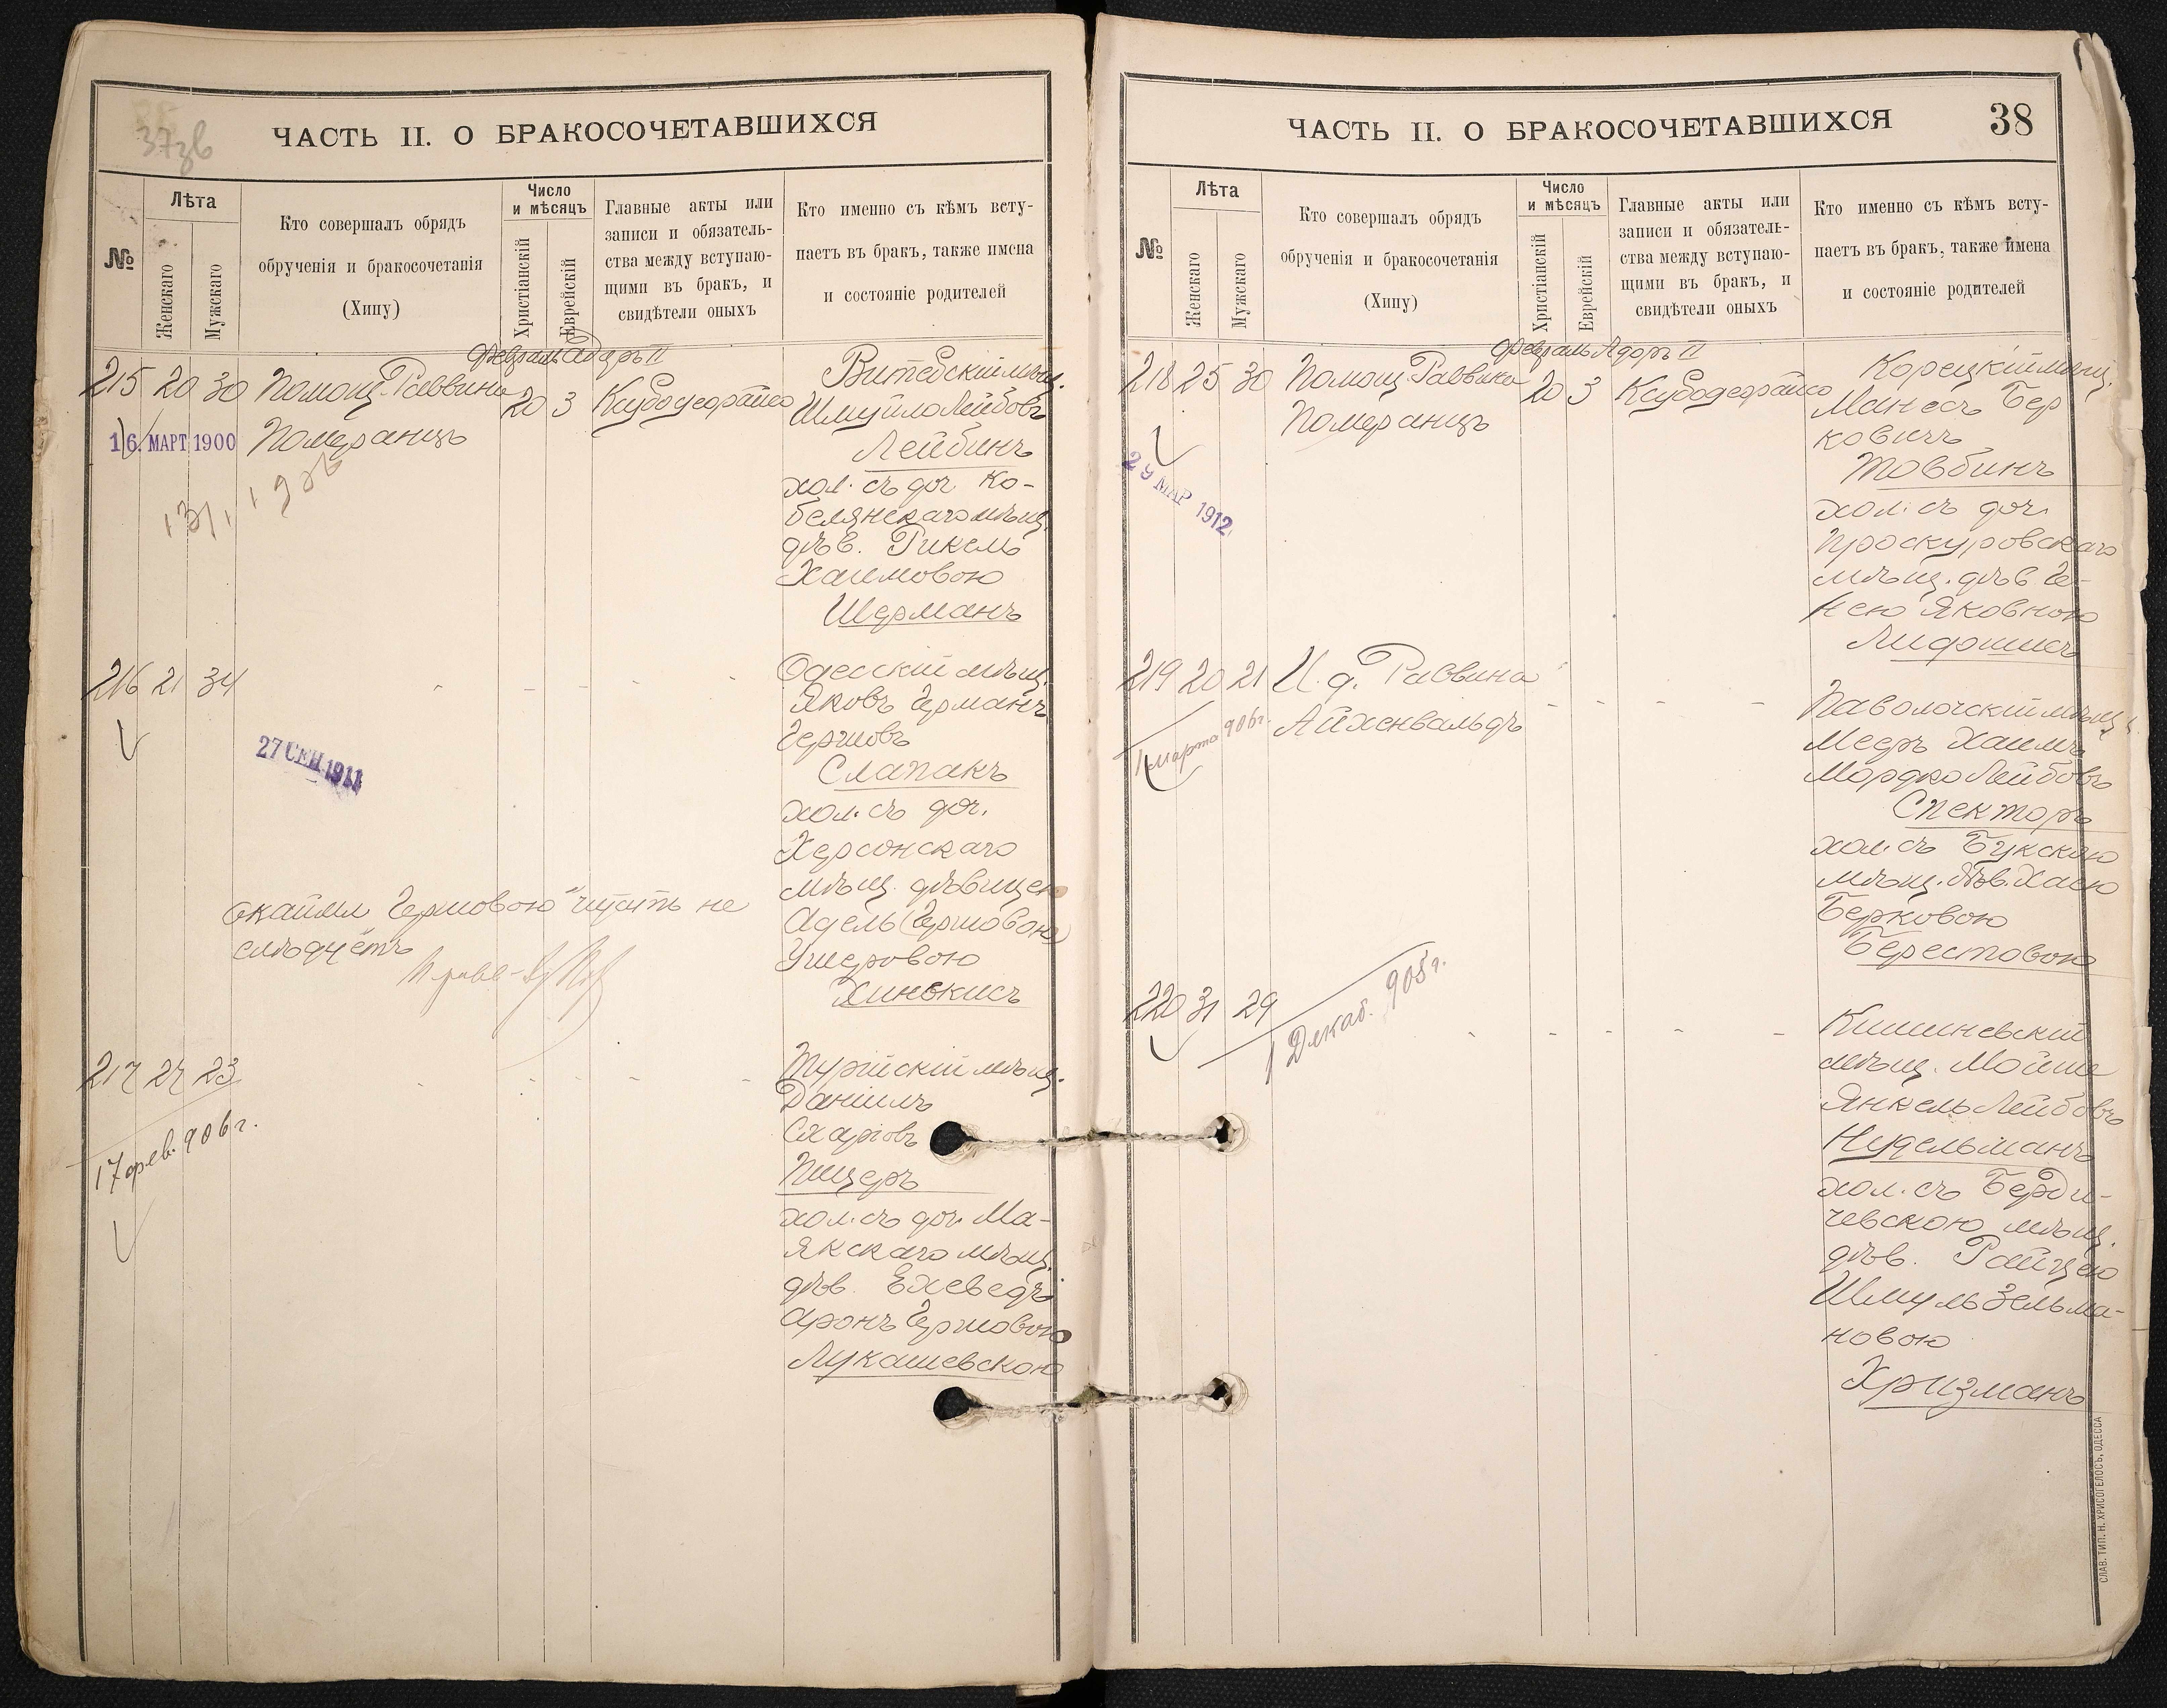 37зв
ЧАСТЬ II. О БРАКОСОЧЕТАВШИХСЯ
№
Лѣта
Женскаго
Мужскаго
Кто совершалъ обрядъ
обрученія и бракосочетанія
(Хипу)
Число
и мѣсяцъ
Христіанскій
Еврейскій
Главные акты или
записи и обязатель-
ства между вступаю-
щими въ бракъ, и
свидѣтели оныхъ
Кто именно съ кѣмъ всту-
паетъ въ бракъ, также имена
и состояніе родителей
Февраль Адаръ II
215 20 30 Помощ. Раввина
Померанцъ
20 3
16. МАРТ 1900
Витебскій мѣщ.
Шмуйло Лейбовъ
Лейбинъ
хол. съ доч. Ко-
белянскаго мѣщ.
дѣв. Рикель
Хаимовою
Шерманъ
216 21 34
27 СЕН 1911
Одесскій мѣщ.
Яковъ Германъ
Гершовъ
Слапакъ
хол. съ доч.
Херсонскаго
мѣщ. дѣвицею
Адель (Гершовою)
Ушеровою
Хинькисъ
Гершовою" читать не
слѣдуетъ
217 27 23
17 фев. 906 г.
Турійскій мѣщ.
Даніилъ
Пицеръ
хол. съ доч. Ма-
якскаго мѣщ.
дѣв. Ехеведъ
Аронъ Гершовою
Лукашевскою
ЧАСТЬ II. О БРАКОСОЧЕТАВШИХСЯ
38
№
Лѣта
Женскаго
Мужскаго
Кто совершалъ обрядъ
обрученія и бракосочетанія
(Хипу)
Число
и мѣсяцъ
Христіанскій
Еврейскій
Главные акты или
записи и обязатель-
ства между вступаю-
щими въ бракъ, и
свидѣтели оныхъ
Кто именно съ кѣмъ всту-
паетъ въ бракъ, также имена
и состояніе родителей
Февраль Адаръ II
218 25 30 Помощ. Раввина
Померанцъ
20 3
29 МАР 1912
Корецкій мѣщ.
Манесъ Бер
ковичъ
Товбинъ
хол. съ доч.
Проскуровскаго
мѣщ. дѣв Ге-
нею Яковною
Лифшисъ
219 20 21 И. д. Раввина
Айхенвальдъ
1 марта 906 г.
Паволочскій мѣщ.
Мееръ Хаимъ
Мордко Лейбовъ
Спекторъ
хол. съ Букскою
мѣщ. дѣв. Хаею
Берковою
Берестовою
220 31 29
1 Декаб. 905 г.
Кишиневскій
мѣщ. Мойше
Янкель Лейбовъ
Нудельманъ
хол. съ Берди-
чевскою мѣщ.
дѣв. Райцею
Шмуль Зельма-
новою
Хризманъ
СЛАВ. ТИП. Н. ХРИСОГЕЛОСЪ, ОДЕССА